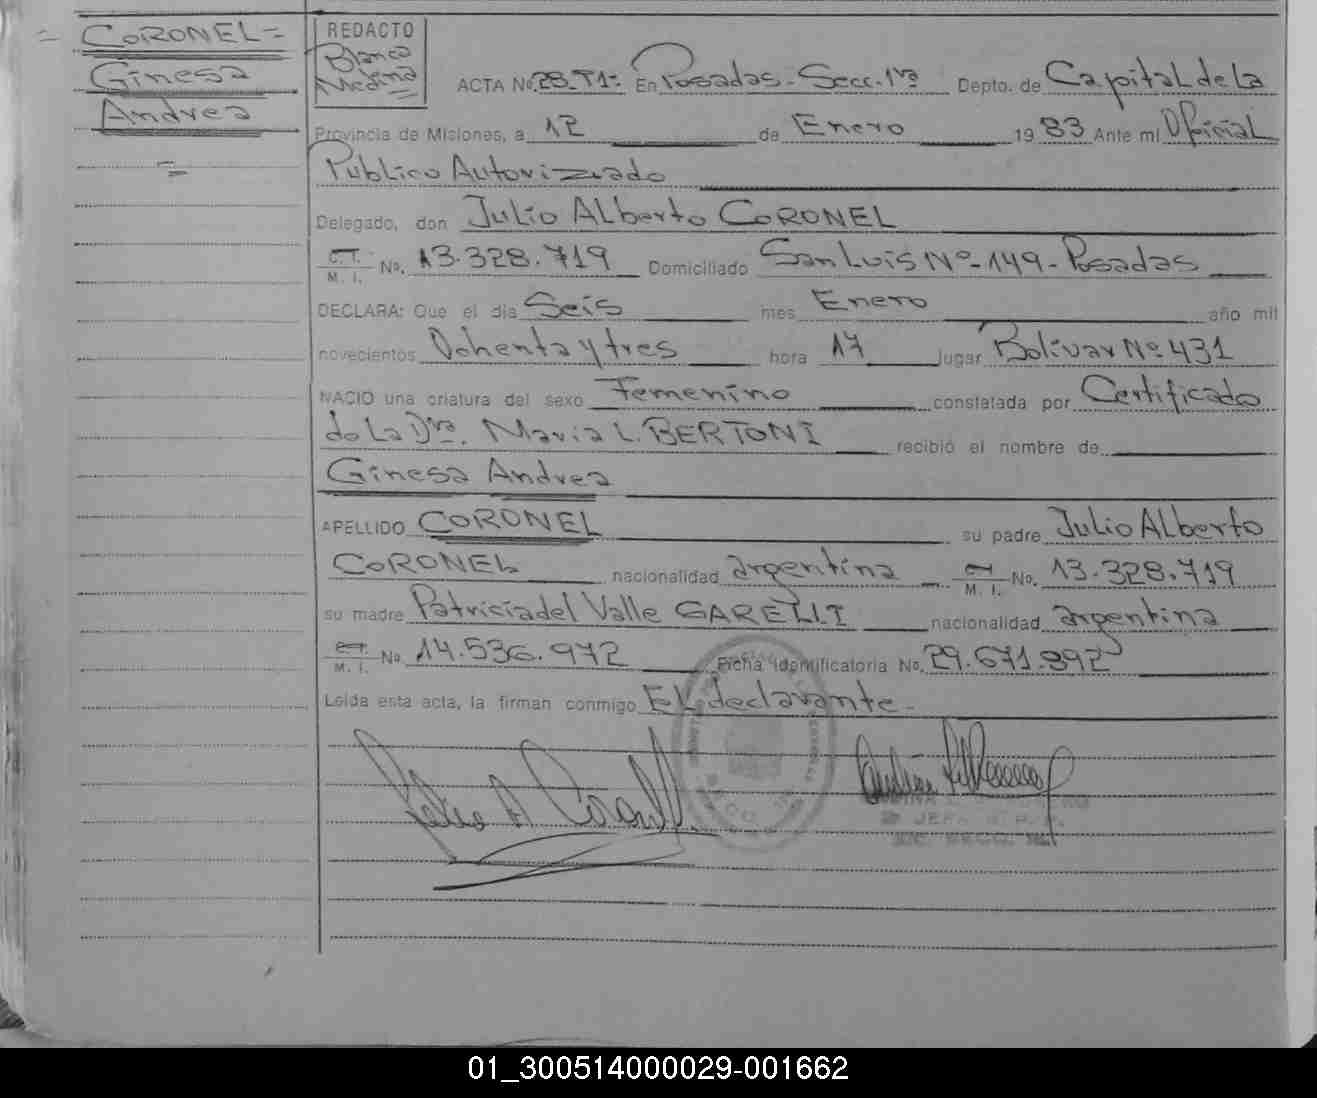 = CORONEL =
Ginesa
Andrea
=
REDACTO
Blanca
Medina
ACTA No. 28-T1= En Posadas-Secc.1ra Depto. de Capital de La
Provincia de Misiones, a 12 de Enero 19 83 Ante mí Oficial
Publico Autorizado
Delegado, don Julio Alberto CORONEL
C. I. M. I. No. 13.328.719 Domiciliado San Luis Nº-149-Posadas
DECLARA: Que el día Seis mes Enero año mil
novecientos Ochenta y tres hora 17 lugar Bolivar Nº 431
NACIO una criatura del sexo Femenino constatada por Certificado
de La Dra. Maria L. BERTONI recibió el nombre de
Ginesa Andrea
APELLIDO CORONEL su padre Julio Alberto
CORONEL nacionalidad argentina M. I. No. 13.328.719
su madre Patricia del Valle GARELLI nacionalidad argentina
M. I. No. 14.536.972 Ficha Identificatoria No. 29.671.892
Leída esta acta, la firman conmigo EL declarante-
01_300514000029-001662